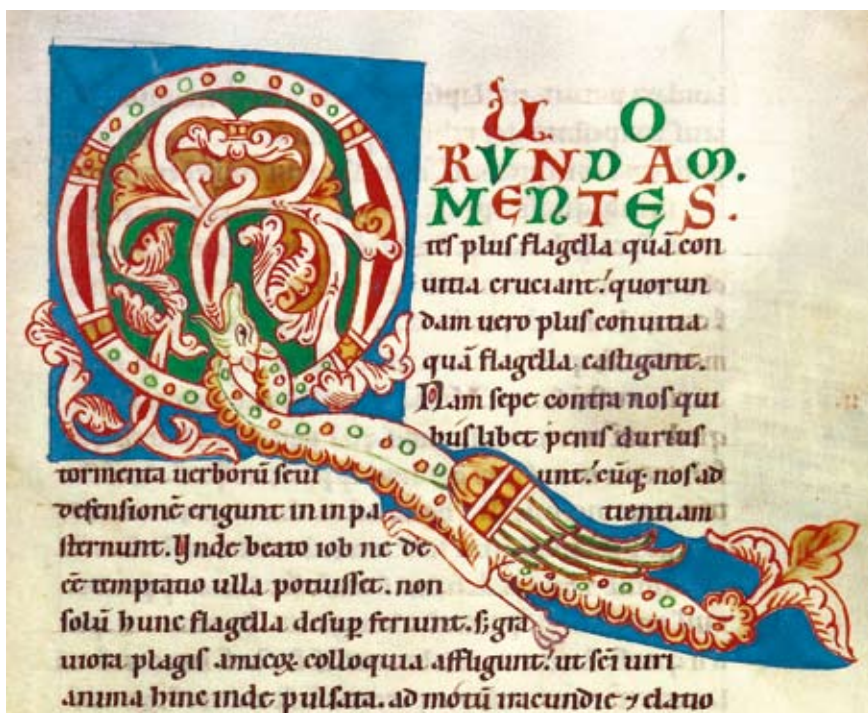 QUO
RUNDAM.
MENTES.
tes plus flagella quā con
uitia cruciant.' quorun
dam uero plus conuitia
quā flagella castigant.
Nam sepe contra nos qui
buslibet penis durius
tormenta uerborū seui unt.' cūq; nos ad
defensionē erigunt in inpa tientiam
sternunt. Vnde beato iob ne de
eē temptatio ulla potuisset. non
solū hunc flagella desup feriunt. s; gra
uiora plagis amicoꝝ colloquia affligunt.' ut sc̄i uiri
anima hinc inde pulsata. ad motū iracundie ⁊ elatio